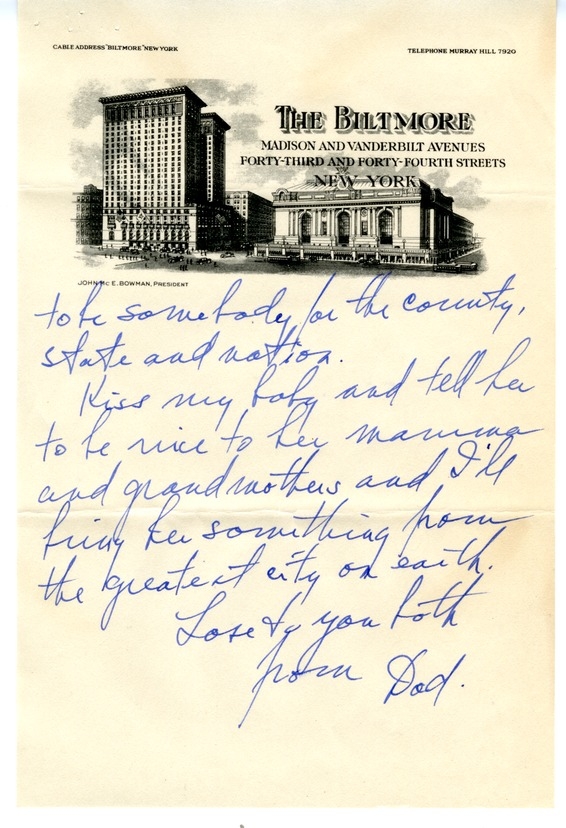 CABLE ADDRESS "BILTMORE" NEW YORK
TELEPHONE MURRAY HILL 7920
THE BILTMORE
MADISON AND VANDERBILT AVENUES
FORTY-THIRD AND FORTY-FOURTH STREETS
NEW YORK
JOHN MC E. BOWMAN, PRESIDENT
to be somebody for the county,
state and nation.
Kiss my baby and tell her
to be nice to her mamma
and grandmothers and I'll
bring her something from
the greatest city on earth.
Love to you both
from Dad.